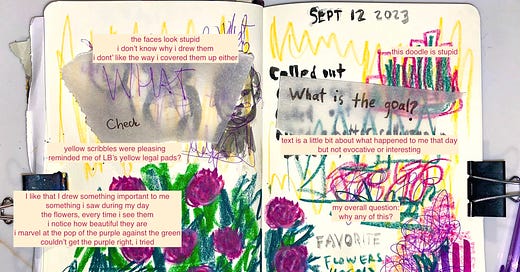 the faces look stupid
i don't know why i drew them
i dont' like the way i covered them up either
WHAT
Check
yellow scribbles were pleasing
reminded me of LB's yellow legal pads?
I like that I drew something important to me
something i saw during my day
the flowers, every time i see them
i notice how beautiful they are
i marvel at the pop of the purple against the green
couldn't get the purple right, i tried
SEPT 12 2023
this doodle is stupid
called out
What is the goal?
text is a little bit about what happened to me that day
but not evocative or interesting
my overall question:
why any of this?
FAVORITE
FLOWERS